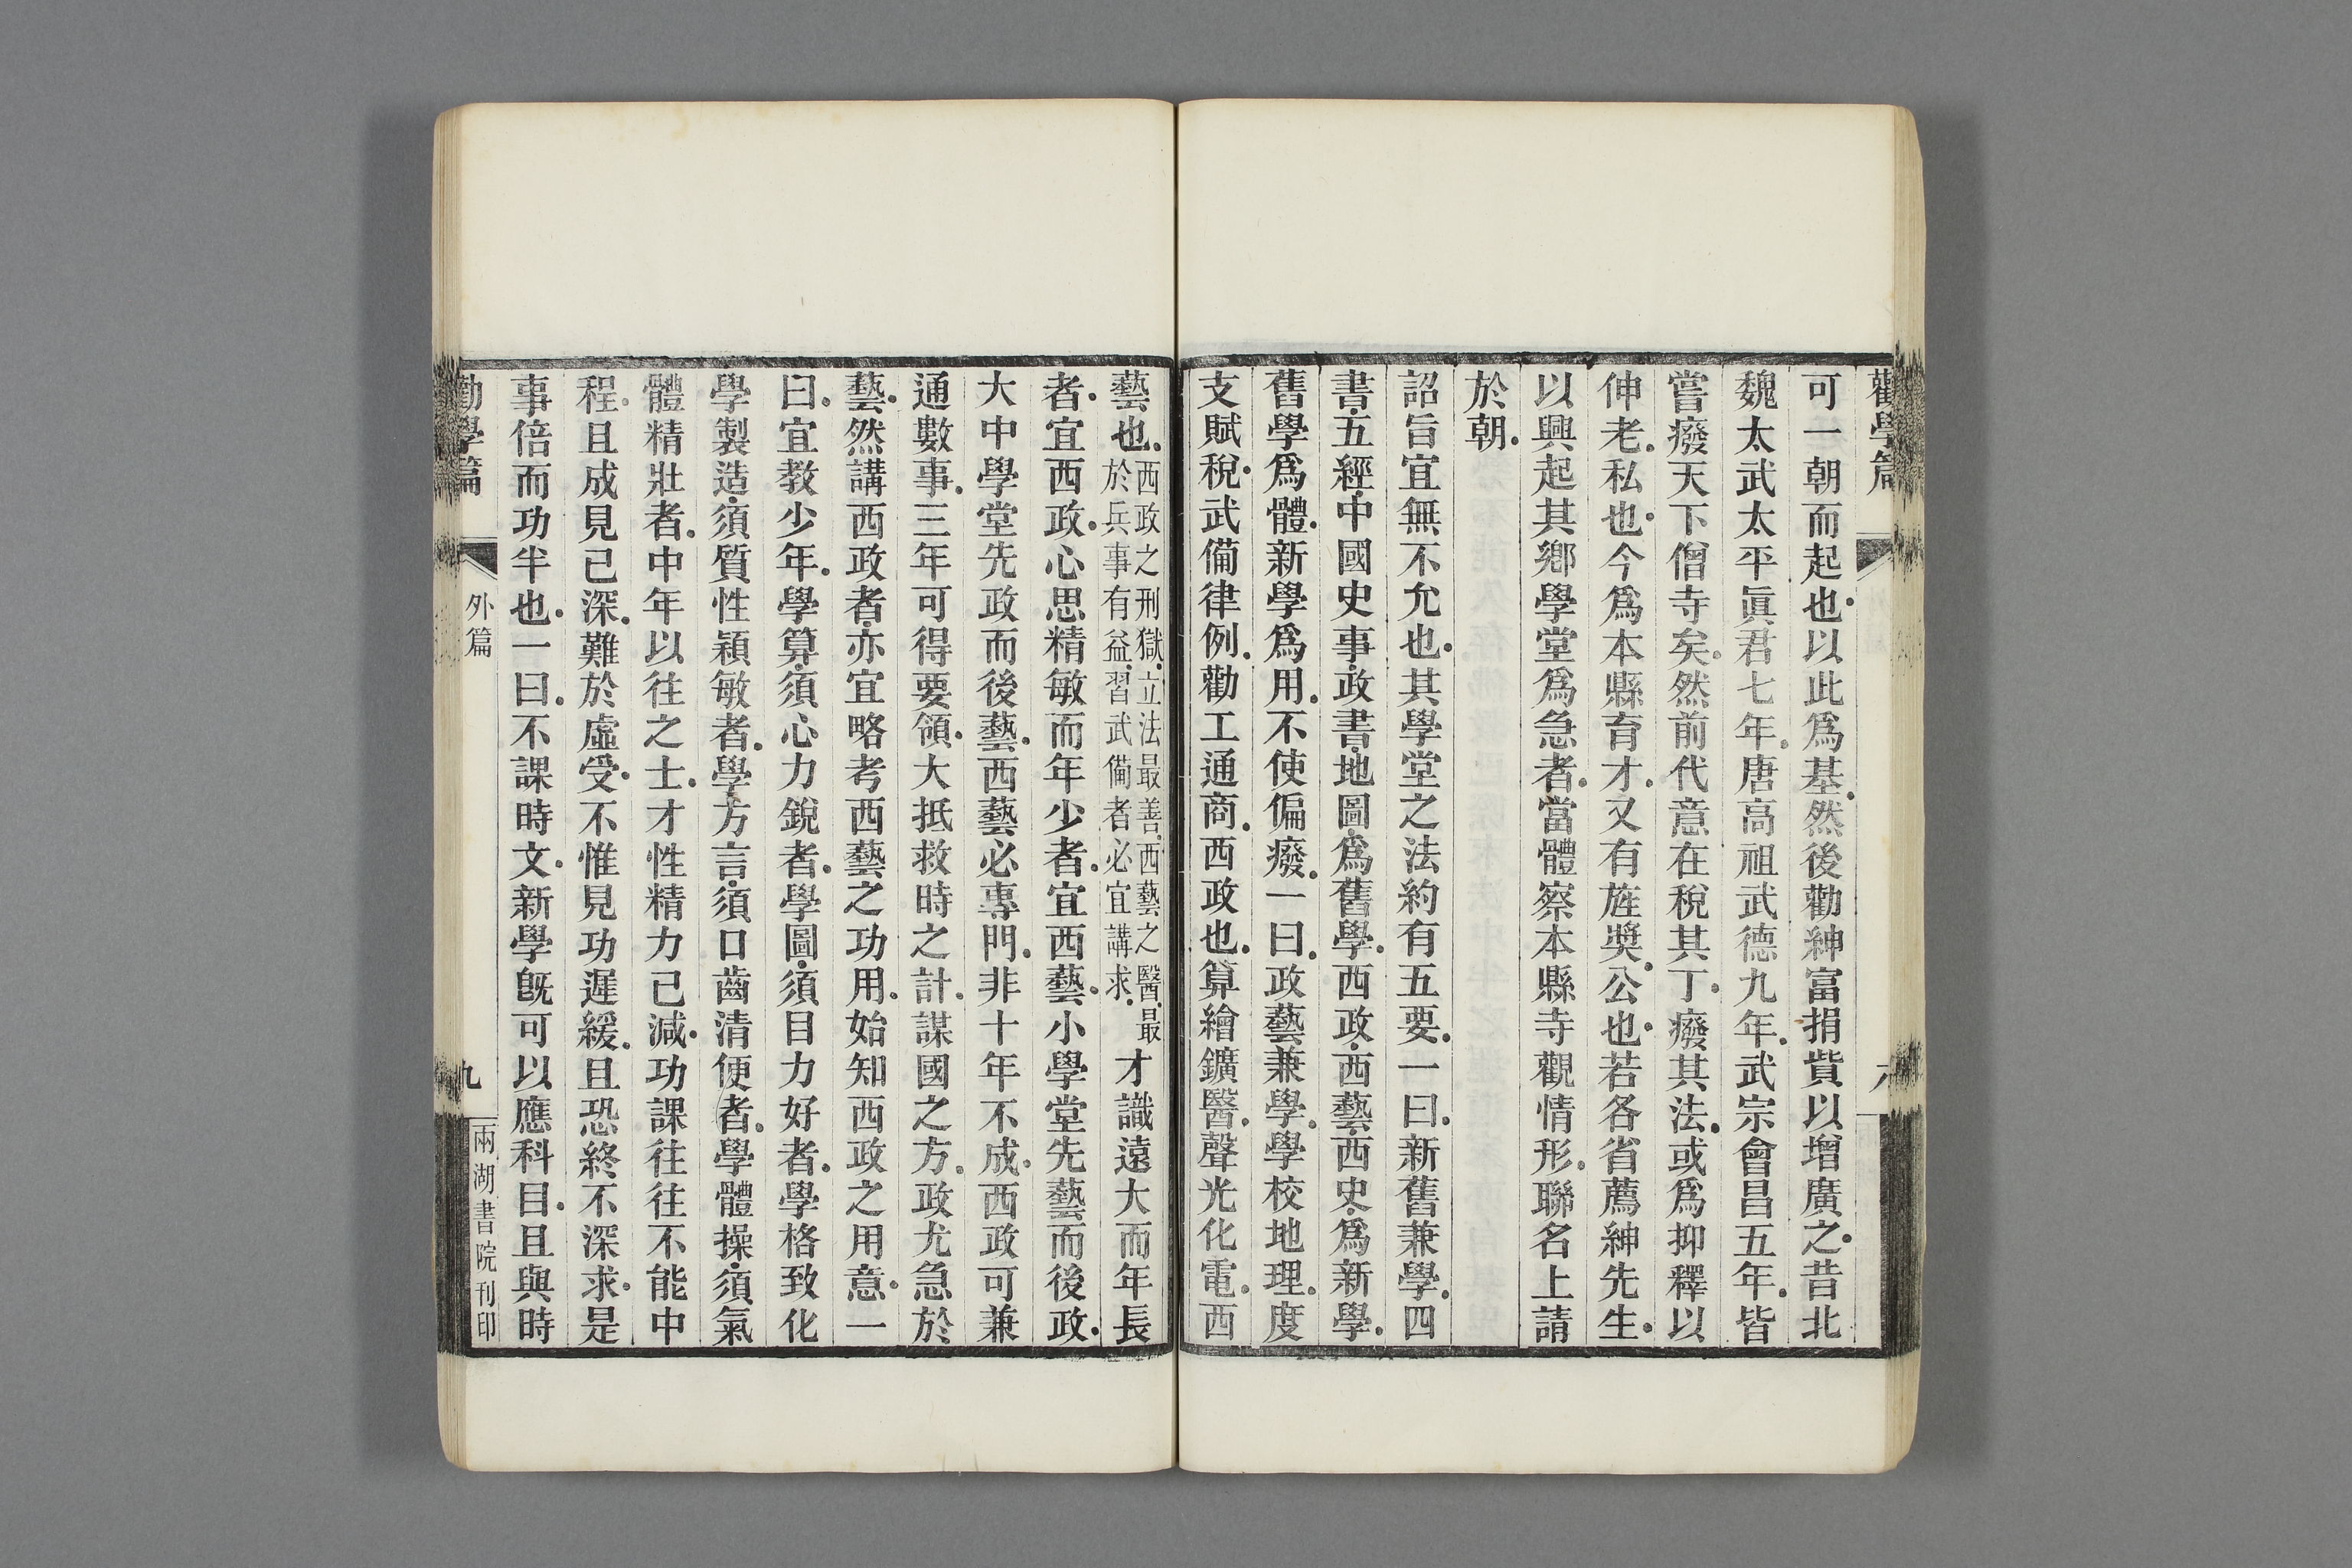 勸學篇
可一朝而起也以此爲基然後勸紳富捐貲以增廣之昔北
魏太武太平眞君七年唐高祖武德九年武宗會昌五年皆
嘗廢天下僧寺矣然前代意在稅其丁廢其法或爲抑釋以
伸老私也今爲本縣育才又有旌奬公也若各省薦紳先生
以興起其鄕學堂爲急者當體察本縣寺觀情形聯名上請
於朝
詔旨宜無不允也其學堂之法約有五要一曰新舊兼學四
書五經中國史事政書地圖爲舊學西政西藝西史爲新學
舊學爲體新學爲用不使偏廢一曰政藝兼學學校地理度
支賦稅武備律例勸工通商西政也算繪鑛醫聲光化電西
藝也西政之刑獄立法最善西藝之醫最
於兵事有益習武備者必宜講求才識遠大而年長
者宜西政心思精敏而年少者宜西藝小學堂先藝而後政
大中學堂先政而後藝西藝必專門非十年不成西政可兼
通數事三年可得要領大抵救時之計謀國之方政尤急於
藝然講西政者亦宜略考西藝之功用始知西政之用意一
曰宜教少年學算須心力銳者學圖須目力好者學格致化
學製造須質性穎敏者學方言須口齒清便者學體操須氣
體精壯者中年以往之士才性精力已減功課往往不能中
程且成見已深難於虛受不惟見功遲緩且恐終不深求是
事倍而功半也一曰不課時文新學旣可以應科目且與時
勸學篇
外篇
九
兩湖書院刊印